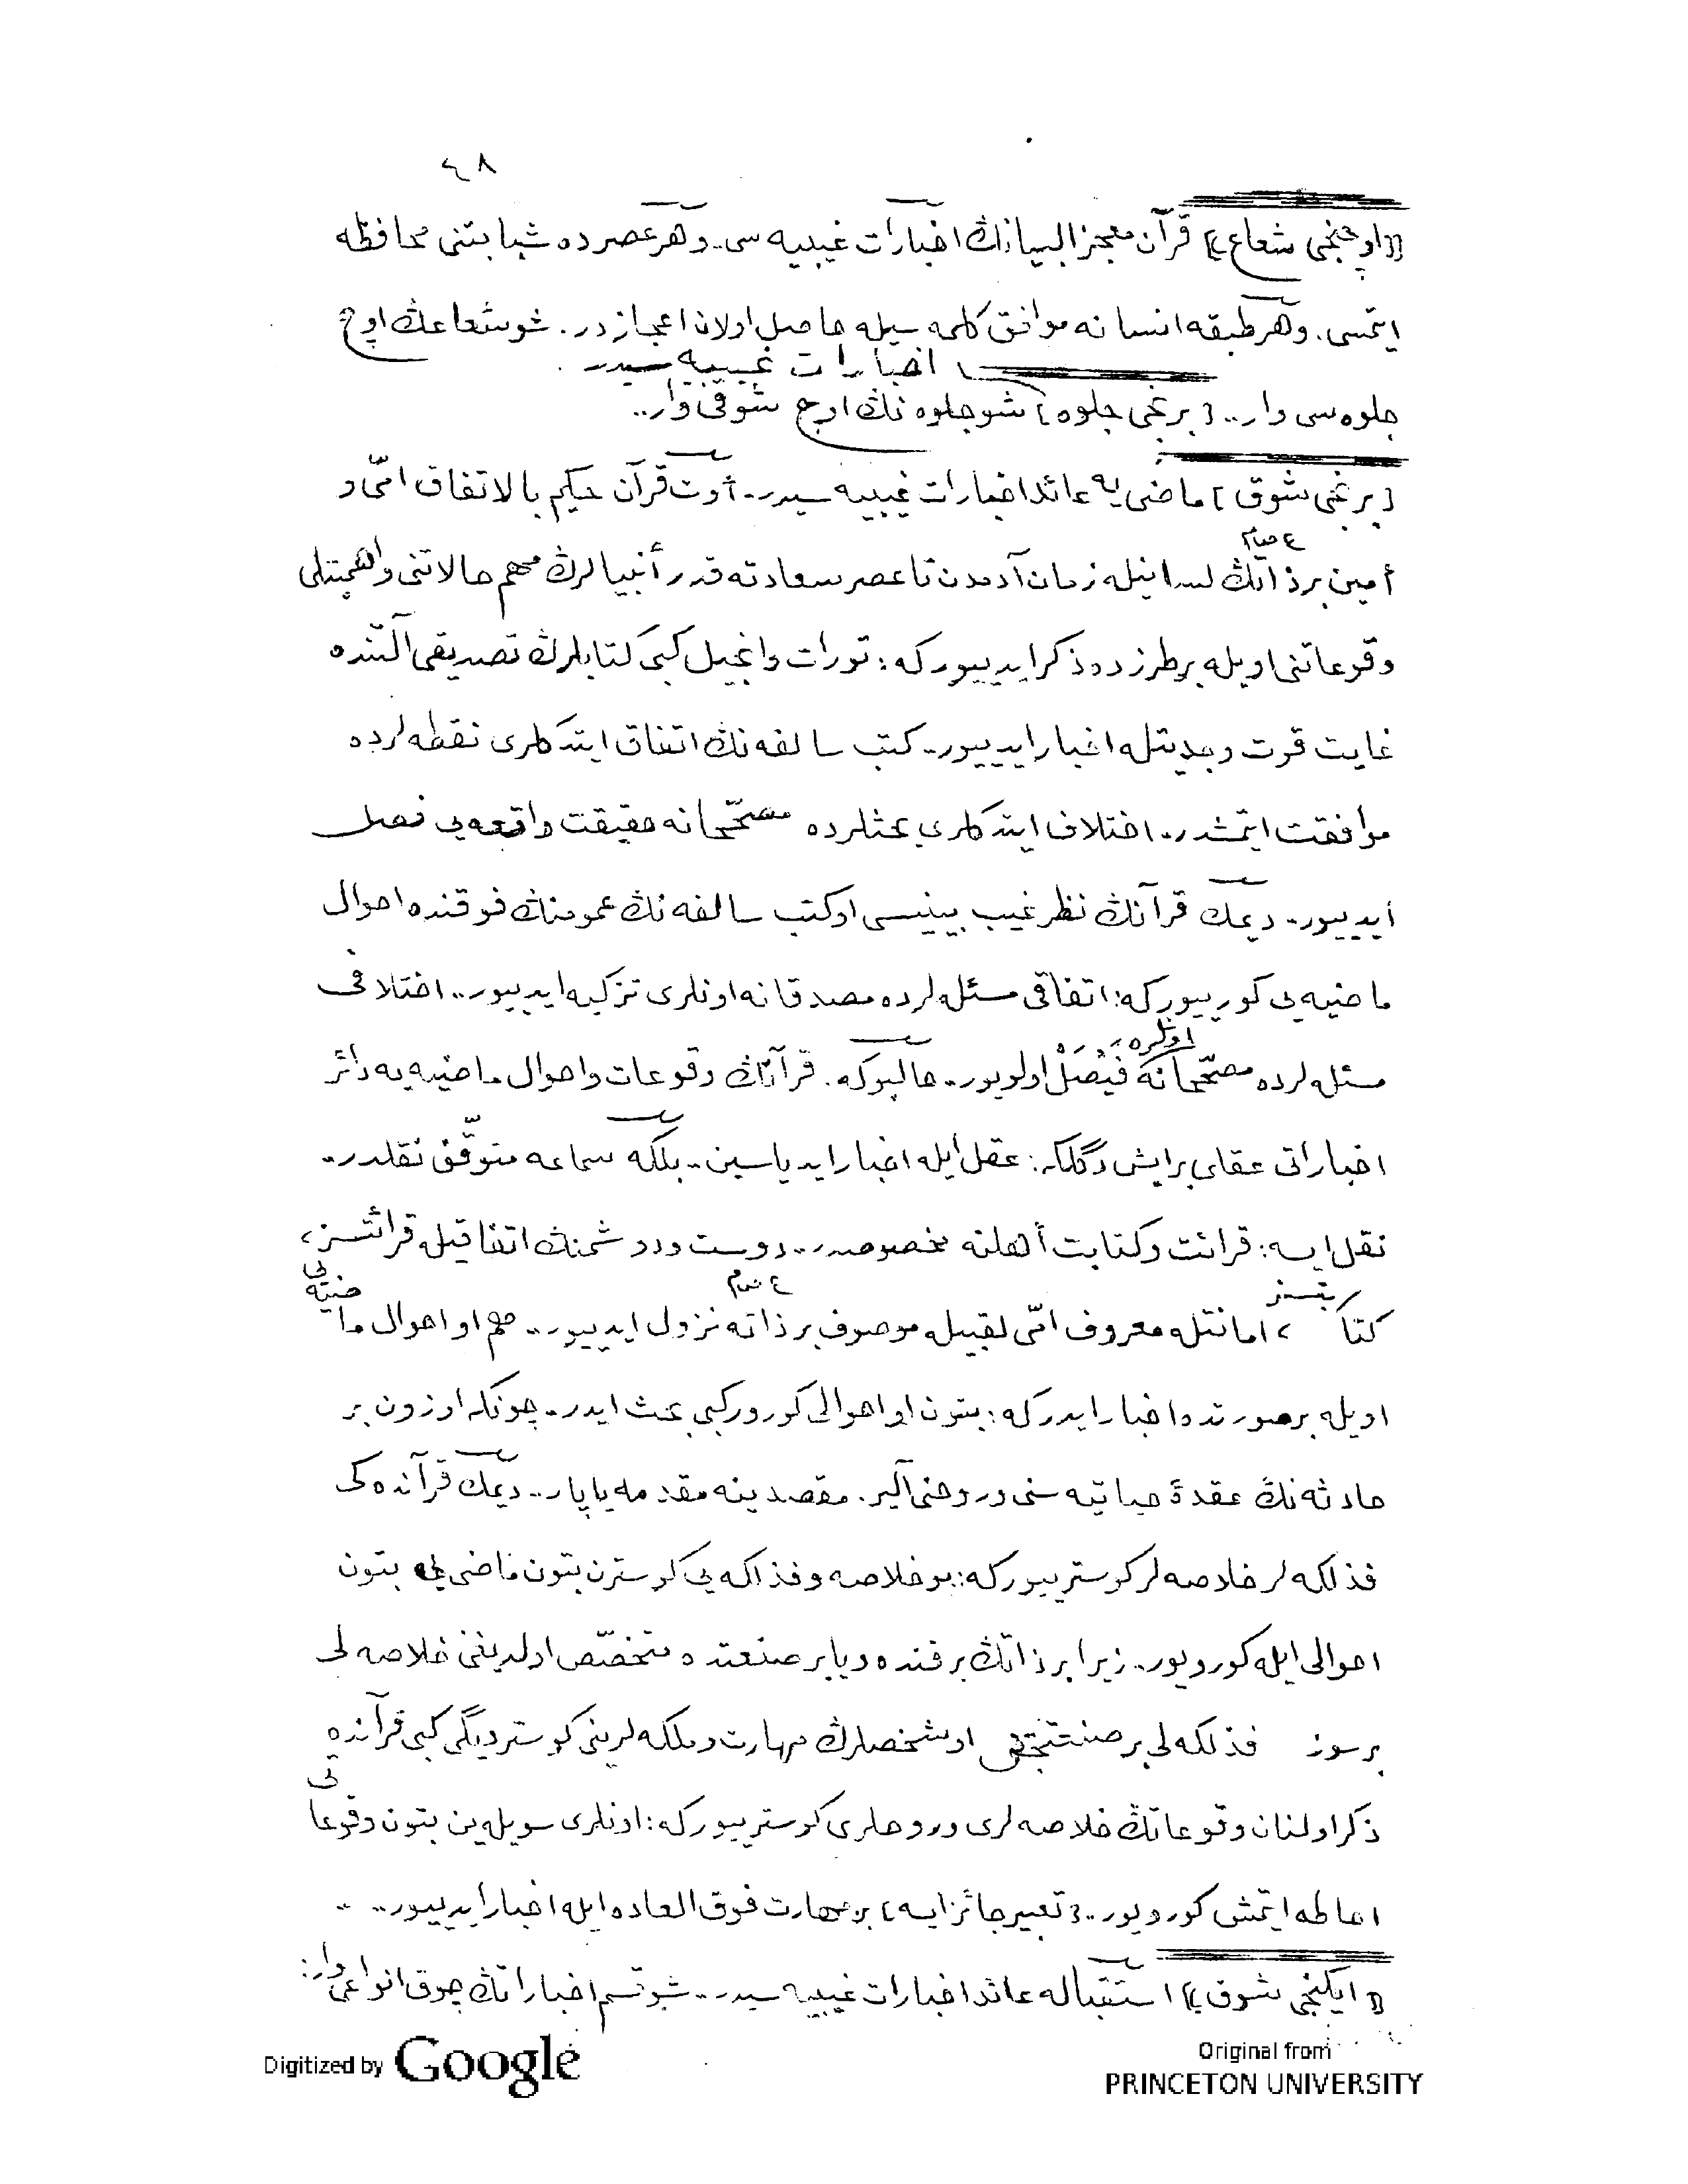 ٤٨
⟦اوچنجی شعاع⟧ قرآن معجز البیانڭ اخبارات غیبیه سی.. وهر عصرده شبابتنی محافظه
ایتمسی. وهر طبقه انسانه موافق كلمه سیله حاصل اولان اعجازدر. شو شعاعڭ اوچ
اخبارات غیبیه سیدر.
جلوه سی وار.. [برنجی جلوه] شو جلوه نڭ اوچ شوقی وار..
[برنجی شوق] ماضی یه عائد اخبارات غیبیه سیدر.. أوت قرآن حكیم بالاتفاق امّی و
أمین بر ذاتڭ لسانیله زمان آدمدن تا عصر سعادته قدر أنبیالرڭ مهم حالاتنی واهمیتلی
وقوعاتنی اویله بر طرزده ذكر ایدییور كه: تورات وانجیل كبی كتابلرڭ تصدیقی آلتنده
غایت قوت وجدیتله اخبار ایدییور.. كتب سالفه نڭ اتفاق ایتدكلری نقطه لرده
موافقت ایتمشدر.. اختلاف ایتدكلری بحثلرده مصحّحانه حقیقت واقعه یی فصل
أیدییور.. دیمك قرآنڭ نظر غیب بینیسی او كتب سالفه نڭ عمومنڭ فوقنده احوال
ماضیه یی كورییور كه: اتفاقی مسئله لرده مصدقانه اونلری تزكیه ایدییور.. اختلافی
اونلره
مسئله لرده مصحّحانه فَیْصَلْ اولویور.. حالبوكه. قرآنڭ وقوعات واحوال ماضیه یه دائر
اخباراتی عقلی بر ایش دگلكه: عقل ایله اخبار ایدیلسین.. بلكه سماعه متوقّف نقلدر..
نقل ایسه: قرائت وكتابت أهلنه مخصوصدر.. دوست ودوشمنڭ اتفاقیله قرائتسز،
كتابتسز، امانتله معروف امّی لقبیله موصوف بر ذاته نزول ایدییور.. هم او احوال ماضیه یی
اویله بر صورتده اخبار ایدر كه: بتون او احوالی كورور كبی بحث ایدر.. چونكه اوزون بر
حادثه نڭ عقدۀ حیاتیه سنی وروحنی آلیر. مقصدینه مقدمه یاپار.. دیمك قرآنده كی
فذلكه لر خلاصه لر كوسترییور كه: بو خلاصه وفذلكه یی كوسترن بتون ماضی یی بتون
احوالی ایله كورویور.. زیرا بر ذاتڭ بر فنده ویا بر صنعتده متخصّص اولدیغنی خلاصه لی
بر سوز فذلكه لی بر صنعتجق او شخصلرڭ مهارت وملكه لرینی كوستردیگی كبی قرآنده
ذكر اولنان وقوعاتڭ خلاصه لری وروحلری كوسترییور كه: اونلری سویله ین بتون وقوعاتی
احاطه ایتمش كورویور.. [تعبیر جائز ایسه] بر مهارت فوق العاده ایله اخبار ایدییور.. ..
⟦ایكنجی شوق⟧ استقباله عائد اخبارات غیبیه سیدر.. شو قسم اخباراتڭ چوق انواعی وار:
Digitized by Google
Original from
PRINCETON UNIVERSITY